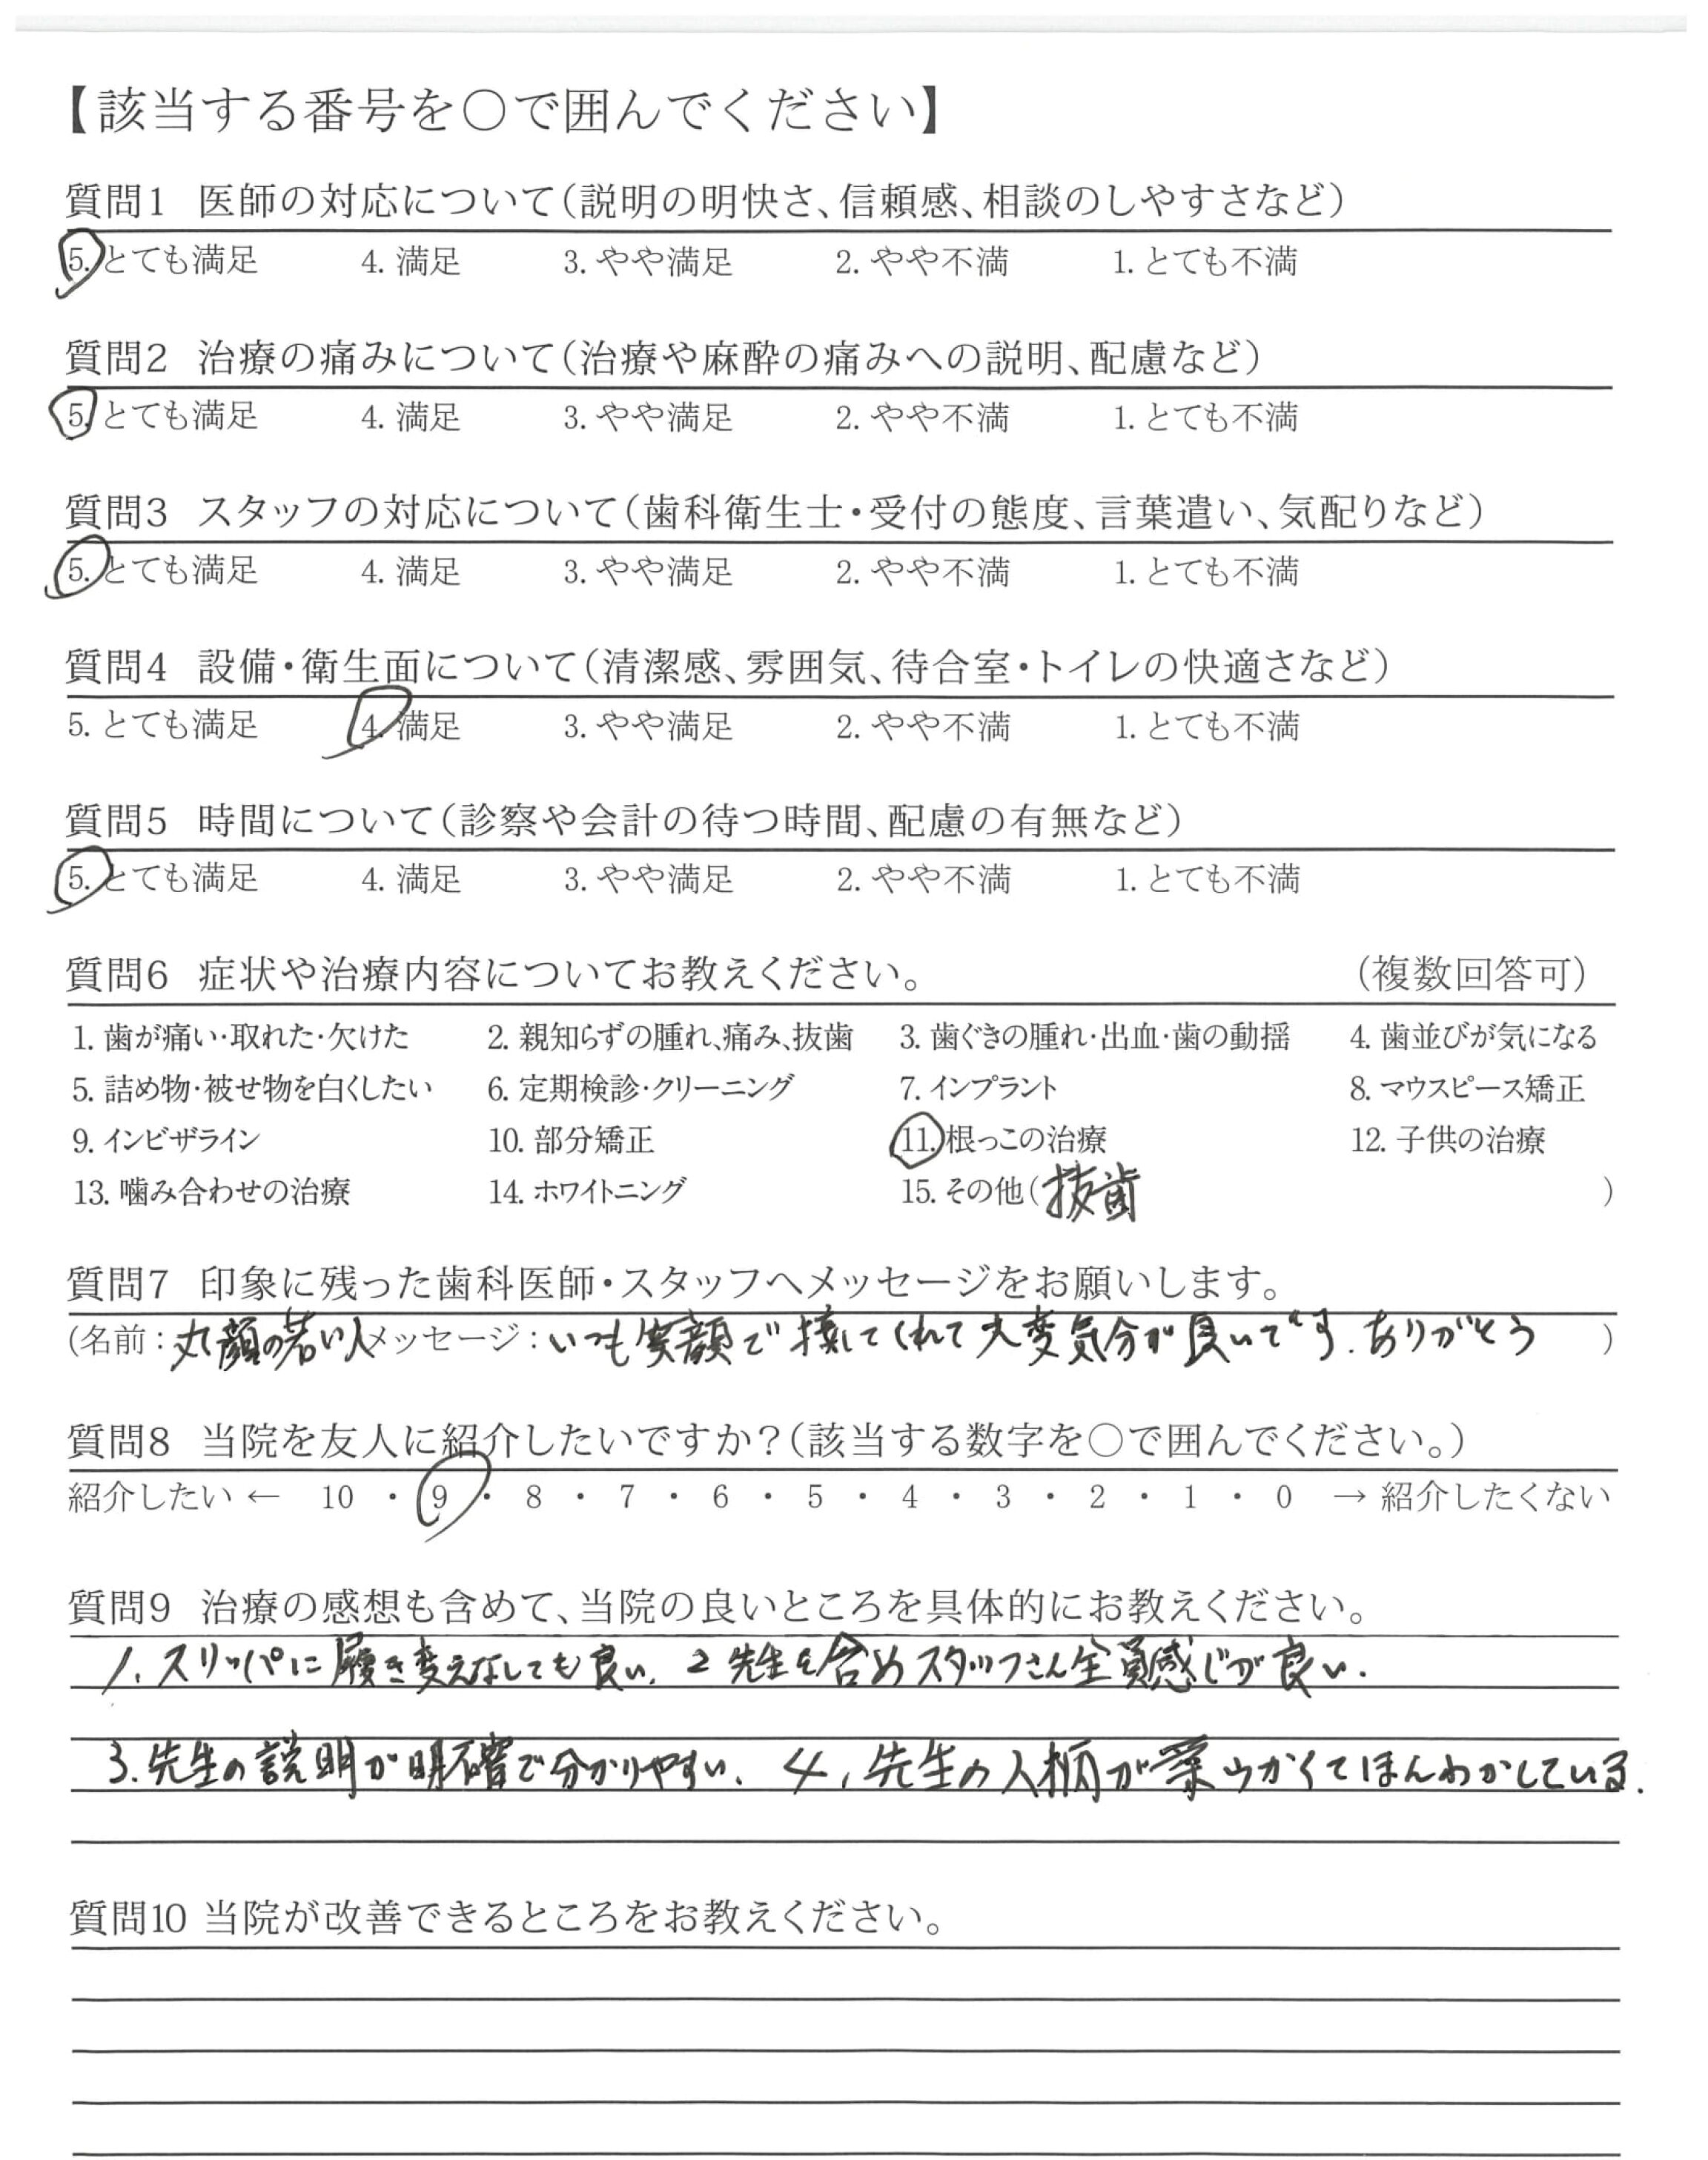 【該当する番号を○で囲んでください】
質問1 医師の対応について(説明の明快さ、信頼感、相談のしやすさなど)
5. とても満足 4. 満足 3. やや満足 2. やや不満 1. とても不満
質問2 治療の痛みについて(治療や麻酔の痛みへの説明、配慮など)
5. とても満足 4. 満足 3. やや満足 2. やや不満 1. とても不満
質問3 スタッフの対応について(歯科衛生士・受付の態度、言葉遣い、気配りなど)
5. とても満足 4. 満足 3. やや満足 2. やや不満 1. とても不満
質問4 設備・衛生面について(清潔感、雰囲気、待合室・トイレの快適さなど)
5. とても満足 4. 満足 3. やや満足 2. やや不満 1. とても不満
質問5 時間について(診察や会計の待つ時間、配慮の有無など)
5. とても満足 4. 満足 3. やや満足 2. やや不満 1. とても不満
質問6 症状や治療内容についてお教えください。 (複数回答可)
1. 歯が痛い・取れた・欠けた 2. 親知らずの腫れ、痛み、抜歯 3. 歯ぐきの腫れ・出血・歯の動揺 4. 歯並びが気になる
5. 詰め物・被せ物を白くしたい 6. 定期検診・クリーニング 7. インプラント 8. マウスピース矯正
9. インビザライン 10. 部分矯正 11. 根っこの治療 12. 子供の治療
13. 噛み合わせの治療 14. ホワイトニング 15. その他(抜歯 )
質問7 印象に残った歯科医師・スタッフへメッセージをお願いします。
(名前:丸顔の若い人 メッセージ:いつも笑顔で接してくれて大変気分が良いです.ありがとう )
質問8 当院を友人に紹介したいですか?(該当する数字を○で囲んでください。)
紹介したい ← 10 ・ 9 ・ 8 ・ 7 ・ 6 ・ 5 ・ 4 ・ 3 ・ 2 ・ 1 ・ 0 → 紹介したくない
質問9 治療の感想も含めて、当院の良いところを具体的にお教えください。
1. スリッパに履き変えなしても良い. 2 先生を含めスタッフさん全員感じが良い.
3. 先生の説明が明確で分かりやすい. 4, 先生の人柄が柔らかくてほんわかしている.
質問10 当院が改善できるところをお教えください。